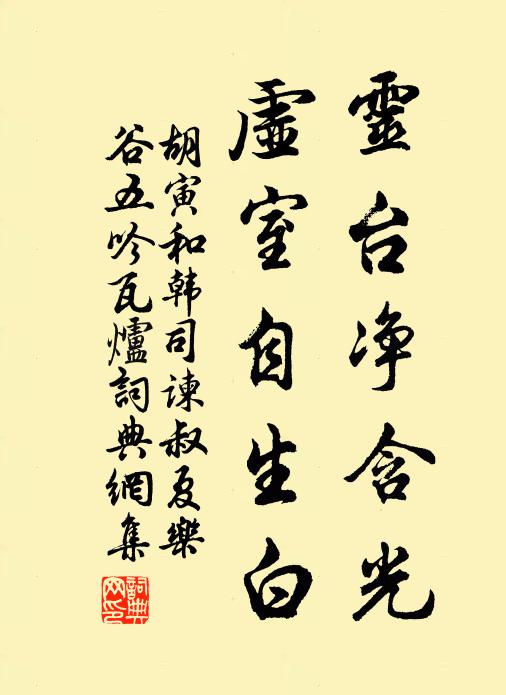 靈台净含光
虛室自生白
胡寅和韩司諫叔夏樂
谷五吟瓦爐詞典網集
詞典网印